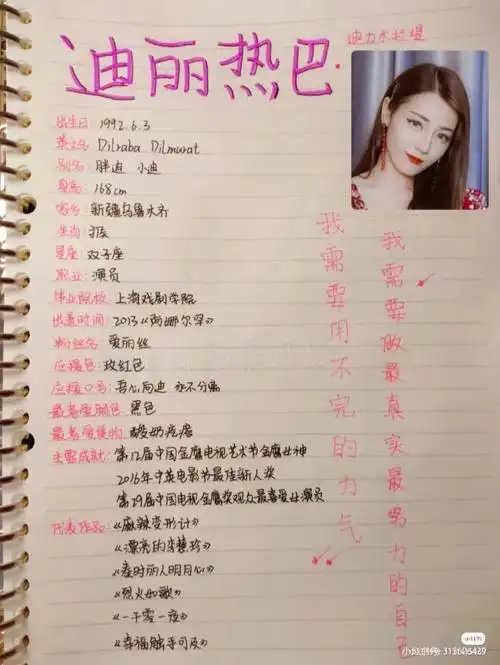 迪丽热巴
迪力木拉提
出生日: 1992.6.3
英文名: Dilraba Dilmurat
别名: 胖迪 小迪
身高: 168cm
家乡: 新疆乌鲁木齐
生肖: 猴
星座: 双子座
职业: 演员
毕业院校: 上海戏剧学院
出道时间: 2013《阿娜尔罕》
粉丝名: 爱丽丝
应援色: 玫红色
应援口号: 吾心向迪 永不分离
最喜爱颜色: 黑色
最喜爱食物: 酸奶疙瘩
主要成就: 第12届中国金鹰电视艺术节金鹰女神
2016年华鼎电影节最佳新人奖
第29届中国电视金鹰奖观众最喜爱女演员
代表作品: 《麻辣变形计》
《漂亮的李慧珍》
《秦时丽人明月心》
《烈火如歌》
《一千零一夜》
《幸福触手可及》
我需要做最真实最努力的自己
我需要用不完的力气
小红书
小红书号: 318606429